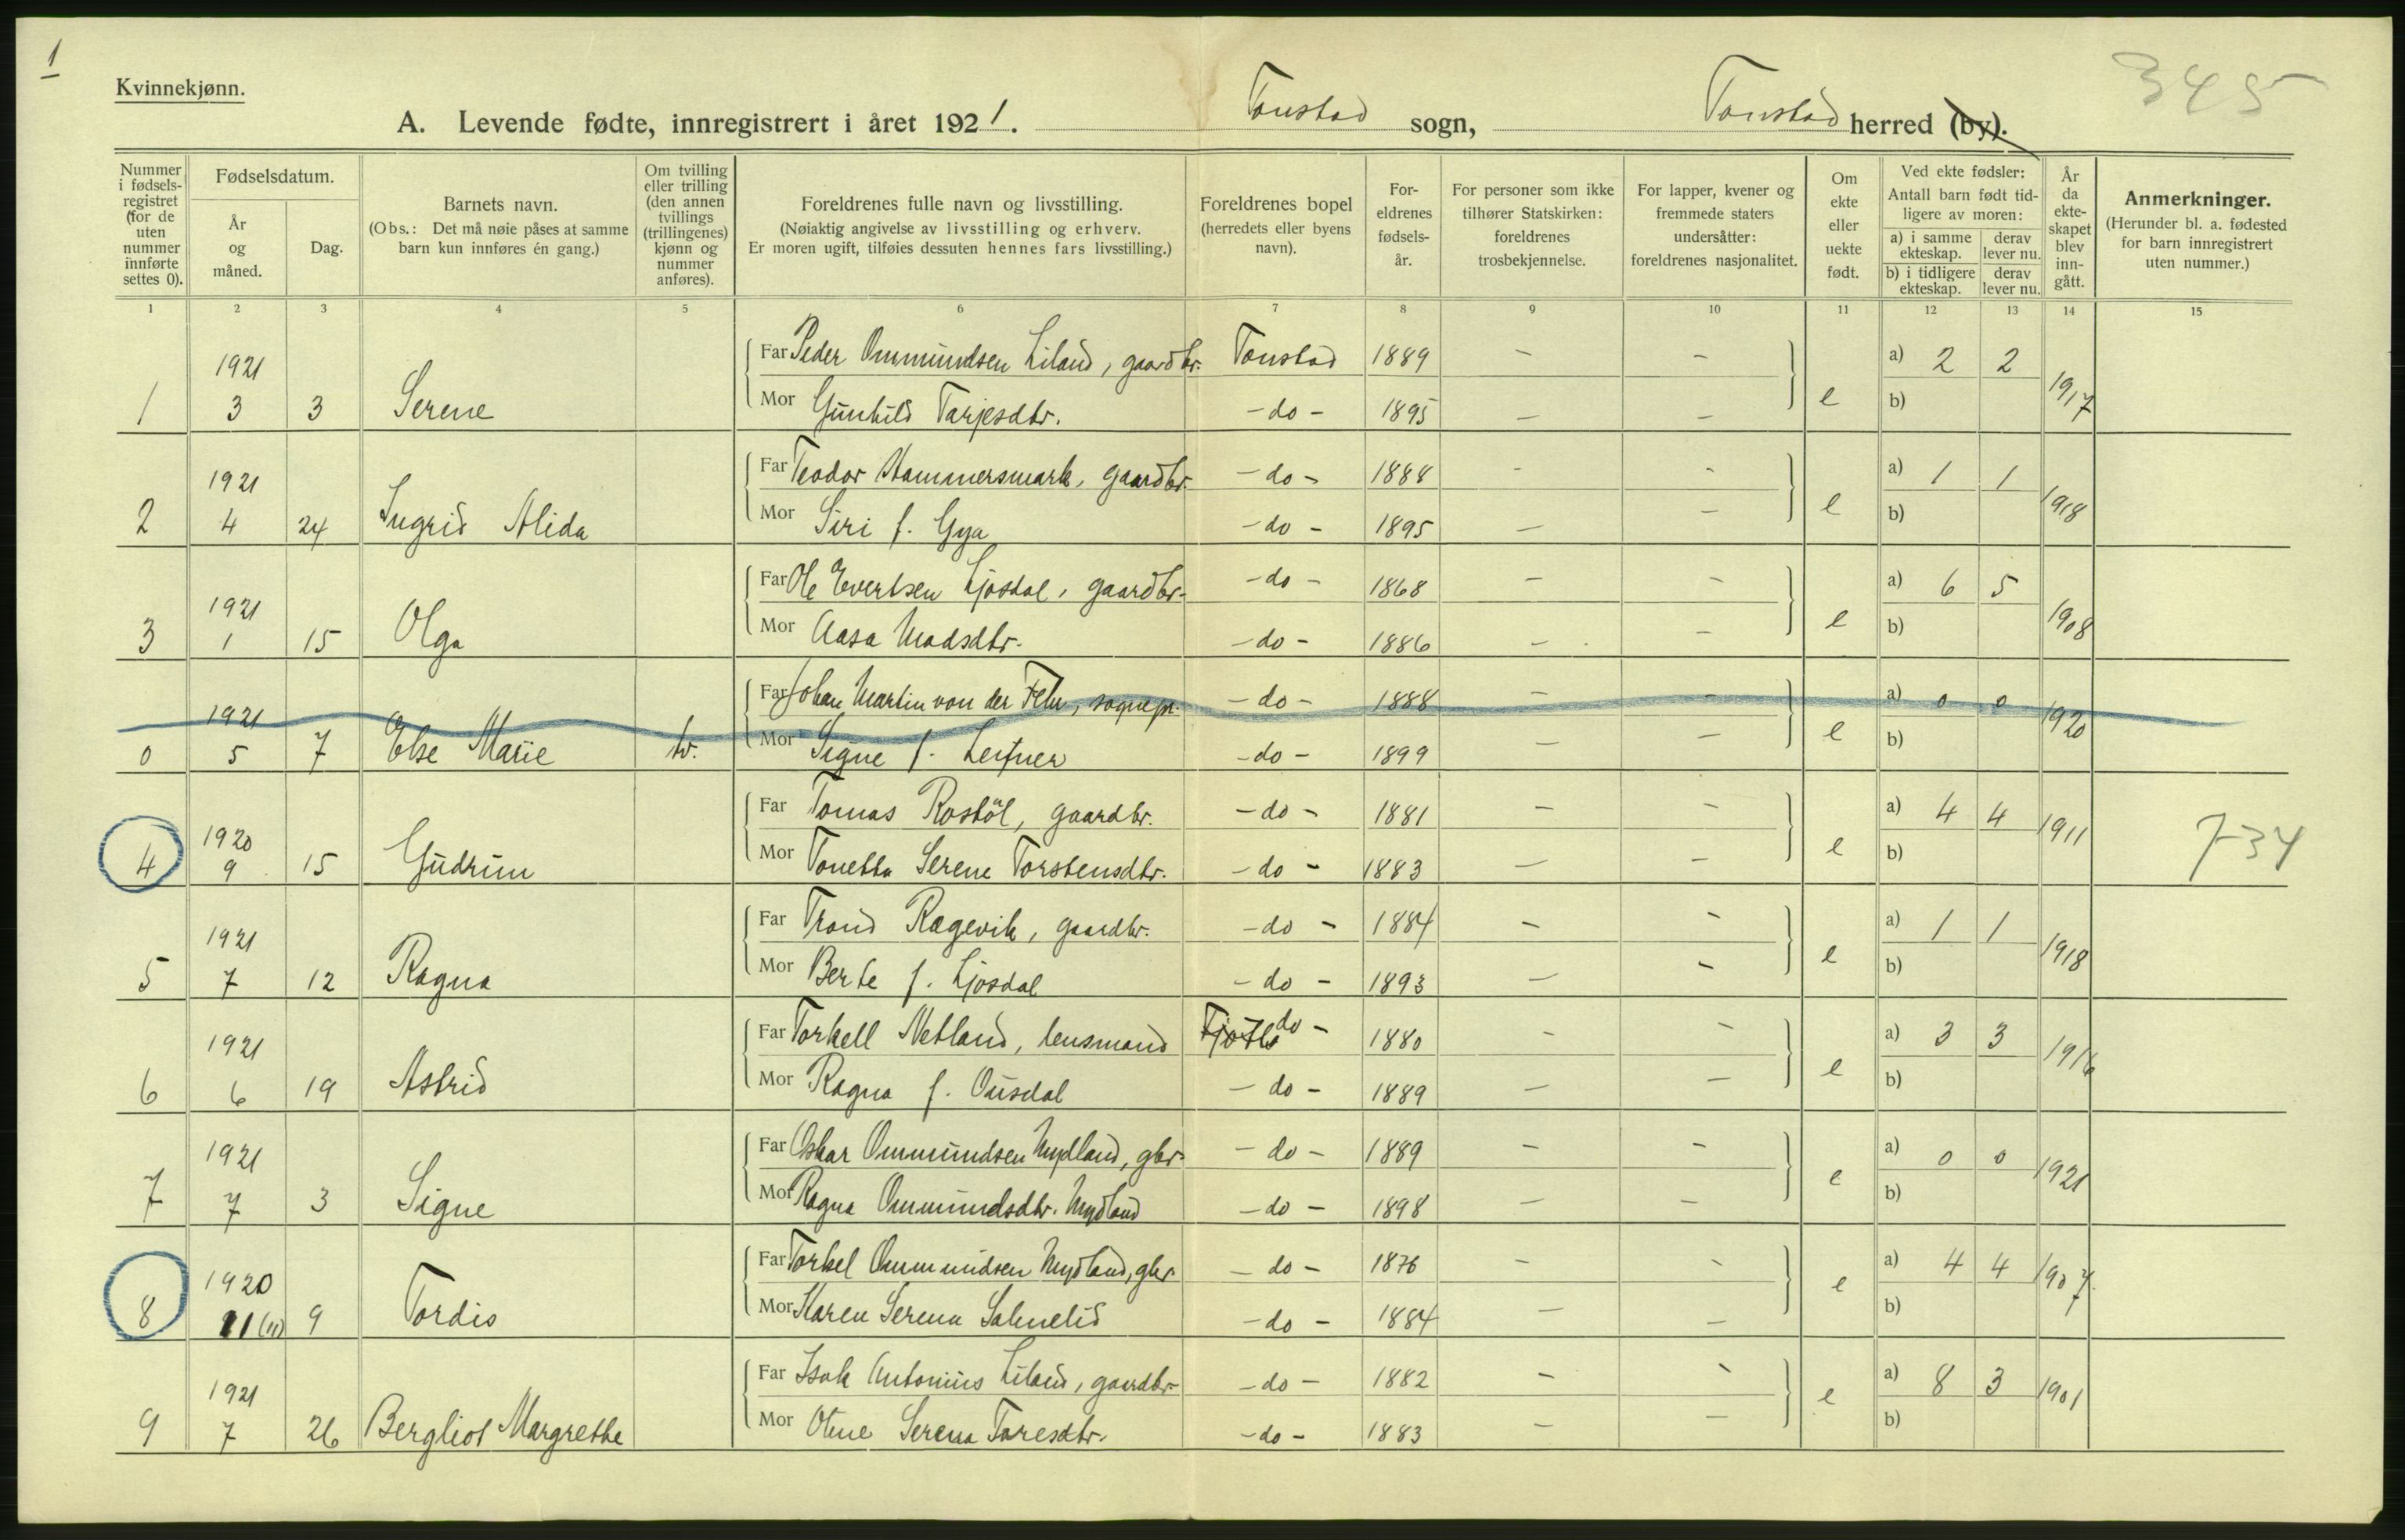 1
345
Kvinnekjønn.
A. Levende fødte, innregistrert i året 1921. Tonstad sogn, Tonstad herred (by).
Nummer i fødsels-registret (for de uten nummer innførte settes 0).
Fødselsdatum.
År og måned.
Dag.
Barnets navn.
(Obs.: Det må nøie påses at samme barn kun innføres én gang.)
Om tvilling eller trilling (den annen tvillings (trillingenes) kjønn og nummer anføres).
Foreldrenes fulle navn og livsstilling.
(Nøiaktig angivelse av livsstilling og erhverv.
Er moren ugift, tilføies dessuten hennes fars livsstilling.)
Foreldrenes bopel
(herredets eller byens navn).
For-eldrenes fødsels-år.
For personer som ikke tilhører Statskirken: foreldrenes trosbekjennelse.
For lapper, kvener og fremmede staters undersåtter: foreldrenes nasjonalitet.
Om ekte eller uekte født.
Ved ekte fødsler:
Antall barn født tid-ligere av moren:
a) i samme ekteskap.
derav lever nu.
b) i tidligere ekteskap.
derav lever nu.
År da ekte-skapet blev inn-gått.
Anmerkninger.
(Herunder bl. a. fødested for barn innregistrert uten nummer.)
1 2 3 4 5 6 7 8 9 10 11 12 13 14 15
1 1921 3 3 Serene
Far Peder Ommundsen Liland, gaardbr. Tonstad 1889 – – a) 2 2
Mor Gunhild Tarjesdtr. – do – 1895 – – e b) 1917
2 1921 4 24 Ingrid Alida
Far Teodor Hammersmark, gaardbr. – do – 1888 – – a) 1 1
Mor Siri f. Gya – do – 1895 – – e b) 1918
3 1921 1 15 Olga
Far Ole Evertsen Ljosdal, gaardbr. – do – 1868 – – a) 6 5
Mor Aasa Madsdtr. – do – 1886 – – e b) 1908
0 1921 5 7 Else Marie tv.
Far Johan Martin von der Fehr, sognepr. – do – 1888 – – a) 0 0
Mor Signe f. – do – 1899 – – e b) 1920
4 1920 9 15 Gudrun
Far Tomas Rostöl, gaardbr. – do – 1881 – – a) 4 4
Mor Tonetta Serene Torstensdtr. – do – 1883 – – e b) 1911 7-34
5 1921 7 12 Ragna
Far Trond Ragevik, gaardbr. – do – 1884 – – a) 1 1
Mor Berte f. Ljosdal – do – 1893 – – e b) 1918
6 1921 6 19 Astrid
Far Torkell Netland, lensmand do – 1880 – – a) 3 3
Mor Ragna f. Ousdal – do – 1889 – – e b) 1916
7 1921 7 3 Signe
Far Oskar Ommundsen Mydland, gbr. – do – 1889 – – a) 0 0
Mor Ragna Ommundsdtr. Mydland – do – 1898 – – e b) 1921
8 1920 11 (11) 9 Tordis
Far Torkel Ommundsen Mydland, gbr. – do – 1876 – – a) 4 4
Mor Karen Serena – do – 1884 – – e b) 1907
9 1921 7 26 Bergliot Margrethe
Far Isak Antonius Liland, gaardbr. – do – 1882 – – a) 8 3
Mor Serena Taresdtr. – do – 1883 – – e b) 1901